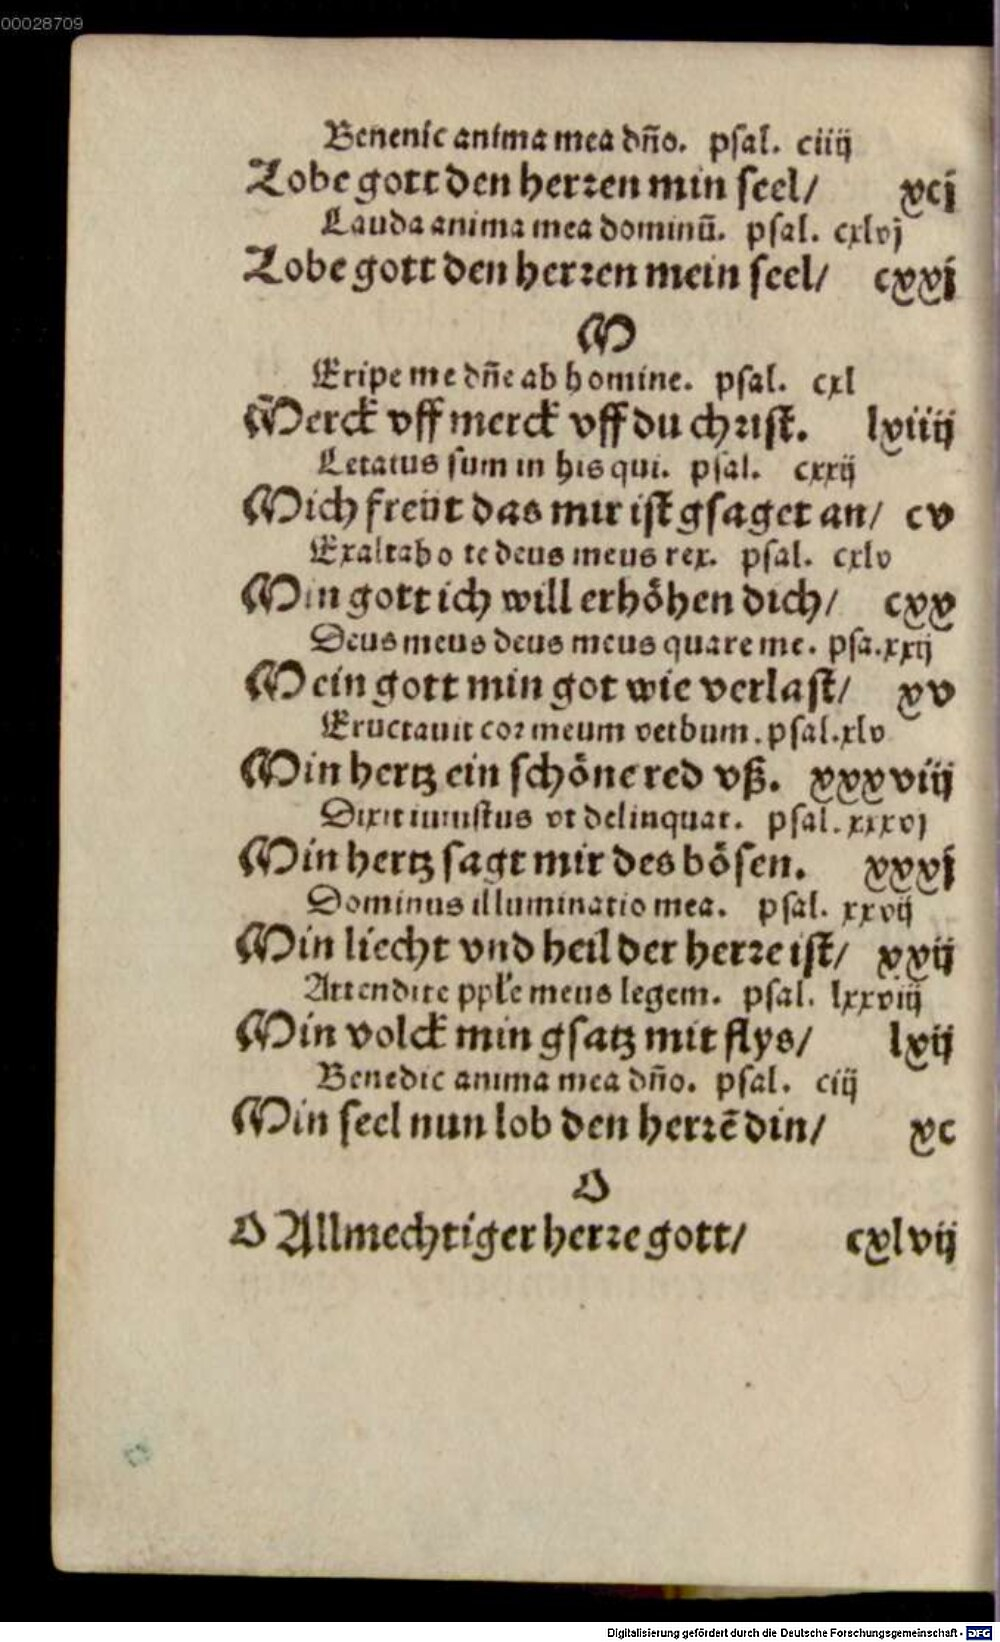 00028709
Benenic anima mea dño. psal. ciiij
Lobe gott den herren min seel/ xcj
Lauda anima mea dominū. psal. cxlvj
Lobe gott den herren mein seel/ cxxj
M
Eripe me dñe ab homine. psal. cxl
Merck vff merck vff du christ. lxiiij
Letatus sum in his qui. psal. cxxij
Mich freüt das mir ist gsaget an/ cv
Exaltabo te deus meus rex. psal. cxlv
Min gott ich will erhöhen dich/ cxx
Deus meus deus meus quare me. psa.xxij
Mein gott min got wie verlast/ xv
Eructauit cor meum verbum. psal.xlv
Min hertz ein schöne red vß. xxxviij
Dixit iniustus vt delinquat. psal.xxxvj
Min hertz sagt mir des bösen. xxxj
Dominus illuminatio mea. psal. xxvij
Min liecht vnd heil der herre ist/ xxij
Attendite pple meus legem. psal. lxxviij
Min volck min gsatz mit flys/ lxij
Benedic anima mea dño. psal. ciij
Min seel nun lob den herrē din/ xc
O
O Allmechtiger herre gott/ cxlvij
Digitalisierung gefördert durch die Deutsche Forschungsgemeinschaft - DFG